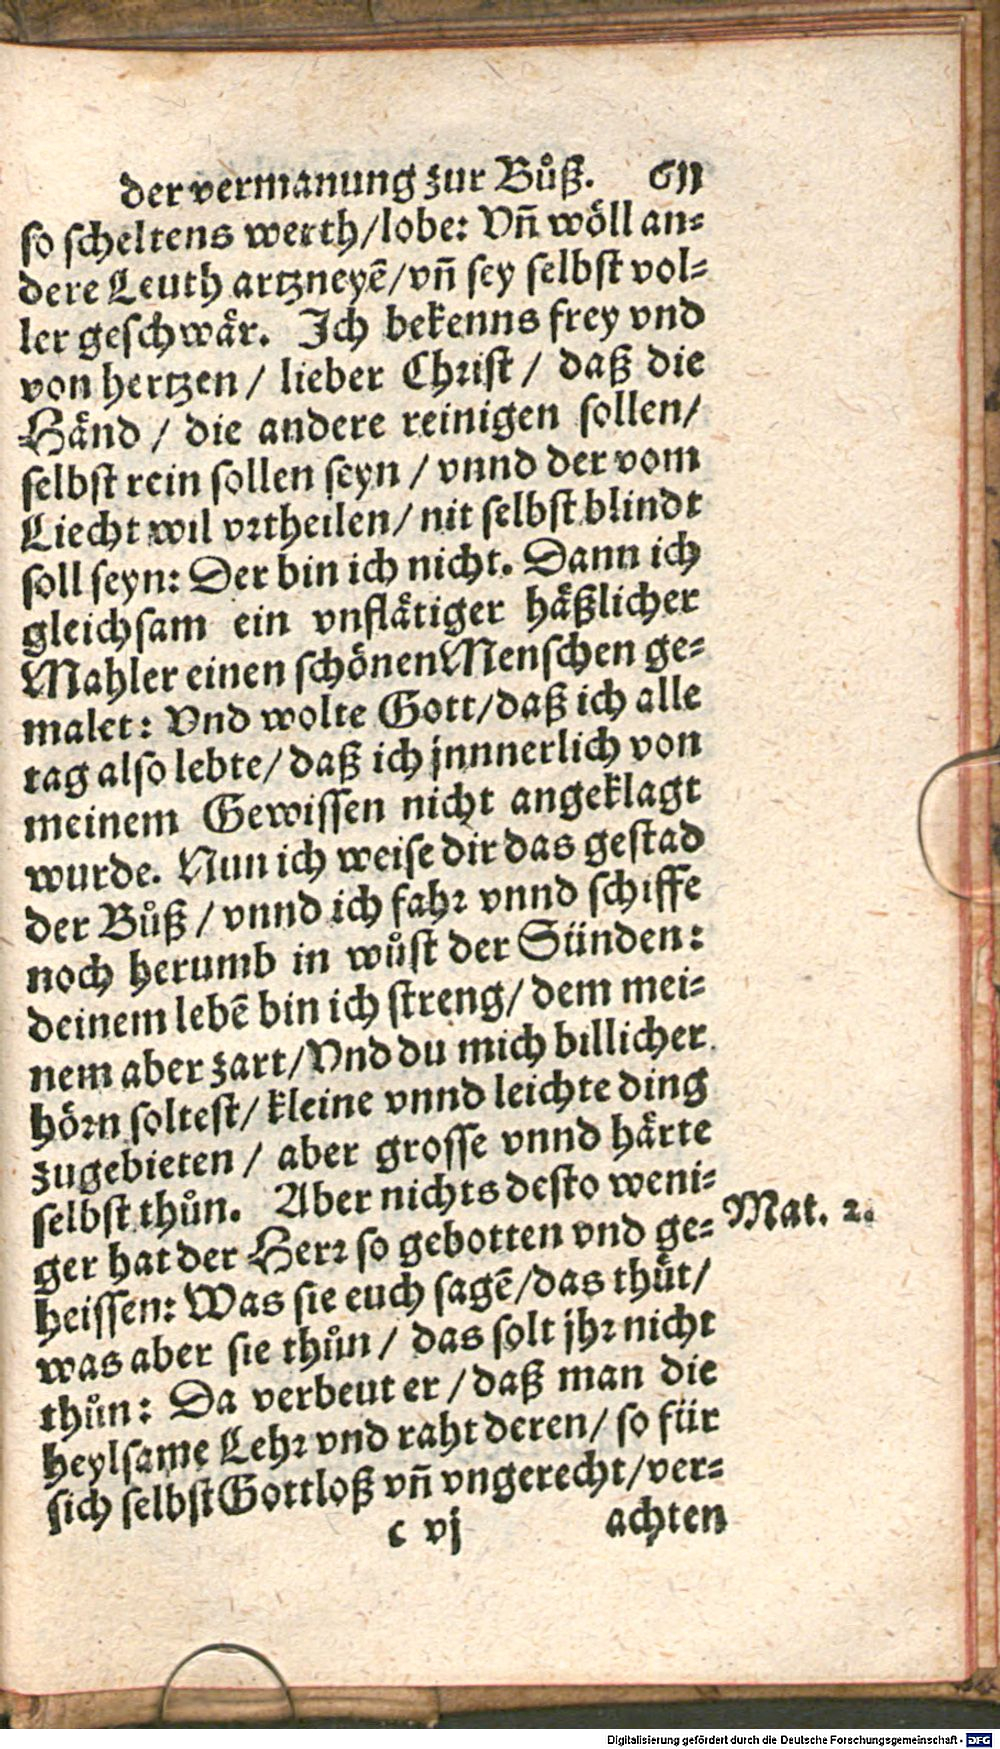 der vermanung zur Bůß.
so scheltens werth/lobe: Vñ wöll an⸗
dere Leuth artzneyē/vñ sey selbst vol⸗
ler geschwår. Ich bekenns frey vnd
von hertzen/ lieber Christ/ daß die
Hånd/ die andere reinigen sollen/
selbst rein sollen seyn/ vnnd der vom
Liecht wil vrtheilen/ nit selbst blindt
soll seyn: Der bin ich nicht. Dann ich
gleichsam ein vnflåtiger håßlicher
Mahler einen schönen Menschen ge⸗
malet: Vnd wolte Gott/daß ich alle
tag also lebte/ daß ich jnnnerlich von
meinem Gewissen nicht angeklagt
wurde. Nun ich weise dir das gestad
der Bůß/ vnnd ich fahr vnnd schiffe
noch herumb in wůst der Sünden:
deinem lebē bin ich streng/ dem mei⸗
nem aber zart/Vnd du mich billicher
hörn soltest/ kleine vnnd leichte ding
zugebieten/ aber grosse vnnd hårte
selbst thůn. Aber nichts desto weni⸗
ger hat der Herr so gebotten vnd ge⸗
heissen: Was sie euch sagē/das thůt/
was aber sie thůn/ das solt jhr nicht
thůn: Da verbeut er/daß man die
heylsame Lehr vnd raht deren/ so für
sich selbst Gottloß vñ vngerecht/ver⸗
c vj achten
Mat. 2.
Digitalisierung gefördert durch die Deutsche Forschungsgemeinschaft - DFG